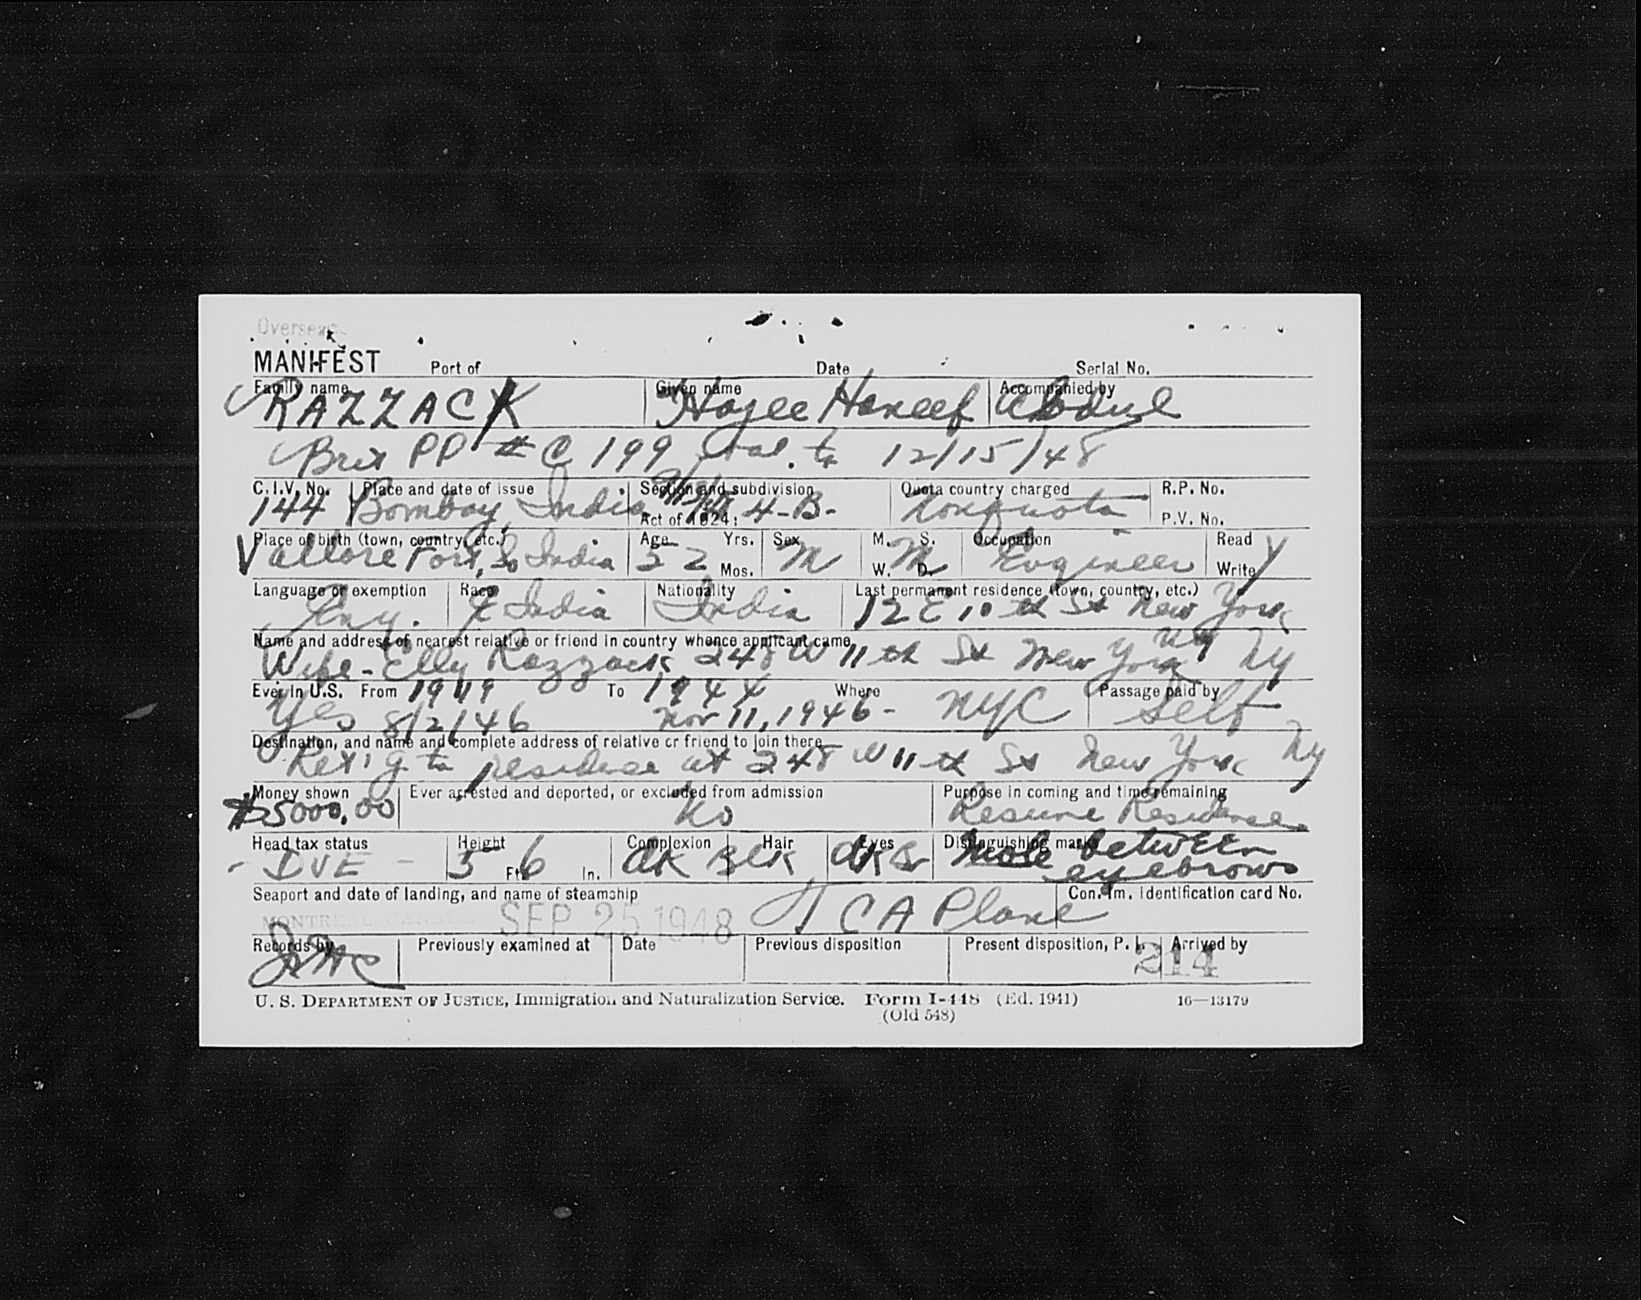 Overseas
MANIFEST Port of Date Serial No.
Family name Given name Accompanied by
RAZZACK Hajee Haneef Abdul
Brit PP # C 199 val. to 12/15/48
C.I.V. No. Place and date of issue Section and subdivision Quota country charged R.P. No.
144 Bombay, India Act of 1924: 4-B- Nonquota P.V. No.
Place of birth (town, country, etc.) Age Yrs. Sex M. S. Occupation Read
Vallore Fort, So India 52 Mos. M W. M D. Engineer Write Y
Language or exemption Race Nationality Last permanent residence (town, country, etc.)
Eng. E India India 12 E 10 th St New York
Name and address of nearest relative or friend in country whence applicant came NY
Wife - Elly Razzack 248 W 11 th St New York NY
Ever in U.S. From 1919 To 1944 Where Passage paid by
Yes 8/2/46 Nov 11, 1946 - NYC Self
Destination, and name and complete address of relative or friend to join there
Ret'g to residence at 248 W 11 th St New York NY
Money shown Ever arrested and deported, or excluded from admission Purpose in coming and time remaining
$5000.00 No Resume Residence
Head tax status Height Complexion Hair Eyes Distinguishing marks
- DUE - 5 Ft. 6 In. dk BLK dk Br Mole between
eyebrows
Seaport and date of landing, and name of steamship Con. Im. Identification card No.
MONTREAL SEP 25 1948 T C A Plane
Records by Previously examined at Date Previous disposition Present disposition, P. I. Arrived by
214
U. S. DEPARTMENT OF JUSTICE, Immigration and Naturalization Service. Form I-448 (Ed. 1941) 16—13179
(Old 548)